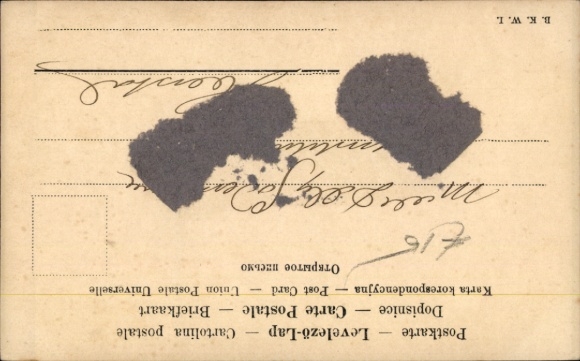 Postkarte — Levelező-Lap — Cartolina postale
Dopisnice — Carte Postale — Briefkaart
Karta korespondencyjna — Post Card — Union Postale Universelle
Открытое письмо
Melle
B. K. W. I.